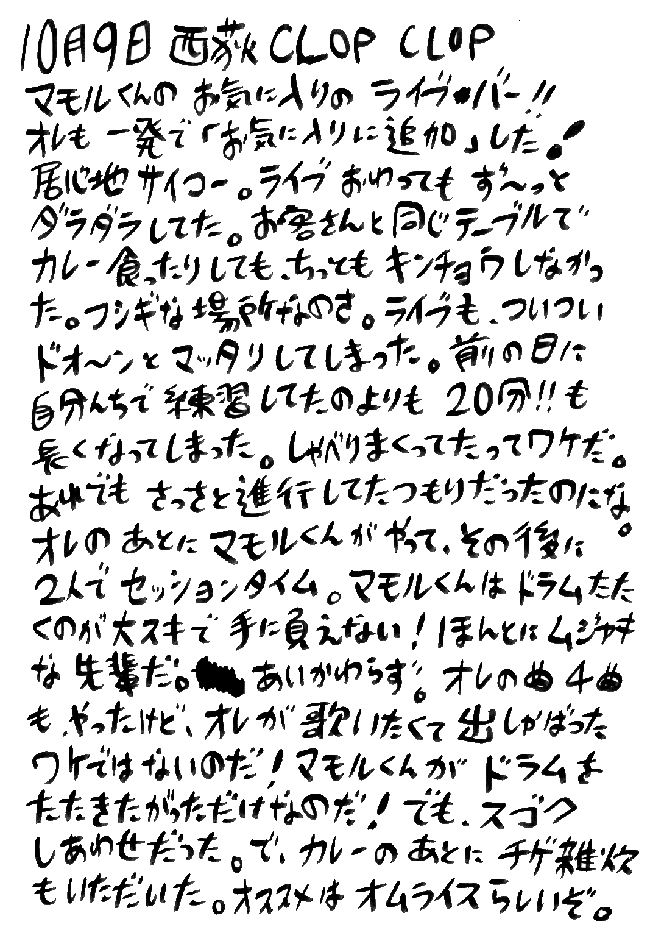 10月9日 西荻 CLOP CLOP
マモルくんの お気に入りの ライブ・バー!!
オレも 一発で「お気に入りに追加」した!
居心地 サイコー。ライブ おわっても ず〜っと
ダラダラしてた。お客さんと同じテーブルで
カレー食ったりしても、ちっとも キンチョウしなかっ
た。フシギな場所なのさ。ライブも、ついつい
ドオ〜ンと マッタリしてしまった。前の日に
自分んちで練習してたのよりも 20分!!も
長くなってしまった。しゃべりまくってたってワケだ。
あれでも さっさと進行してたつもりだったのにな。
オレの あとに マモルくんが やって、その後に
2人で セッションタイム。マモルくんは ドラムたた
くのが大スキで 手に負えない!ほんとに ムジャキ
な 先輩だ。 あいかわらず。オレの曲 4曲
も、やったけど、オレが 歌いたくて 出しゃばった
ワケではないのだ!マモルくんが ドラムを
たたきたがっただけなのだ!でも、スゴク
しあわせだった。で、カレーのあとに チゲ雑炊
もいただいた。オススメは オムライスらしいぞ。